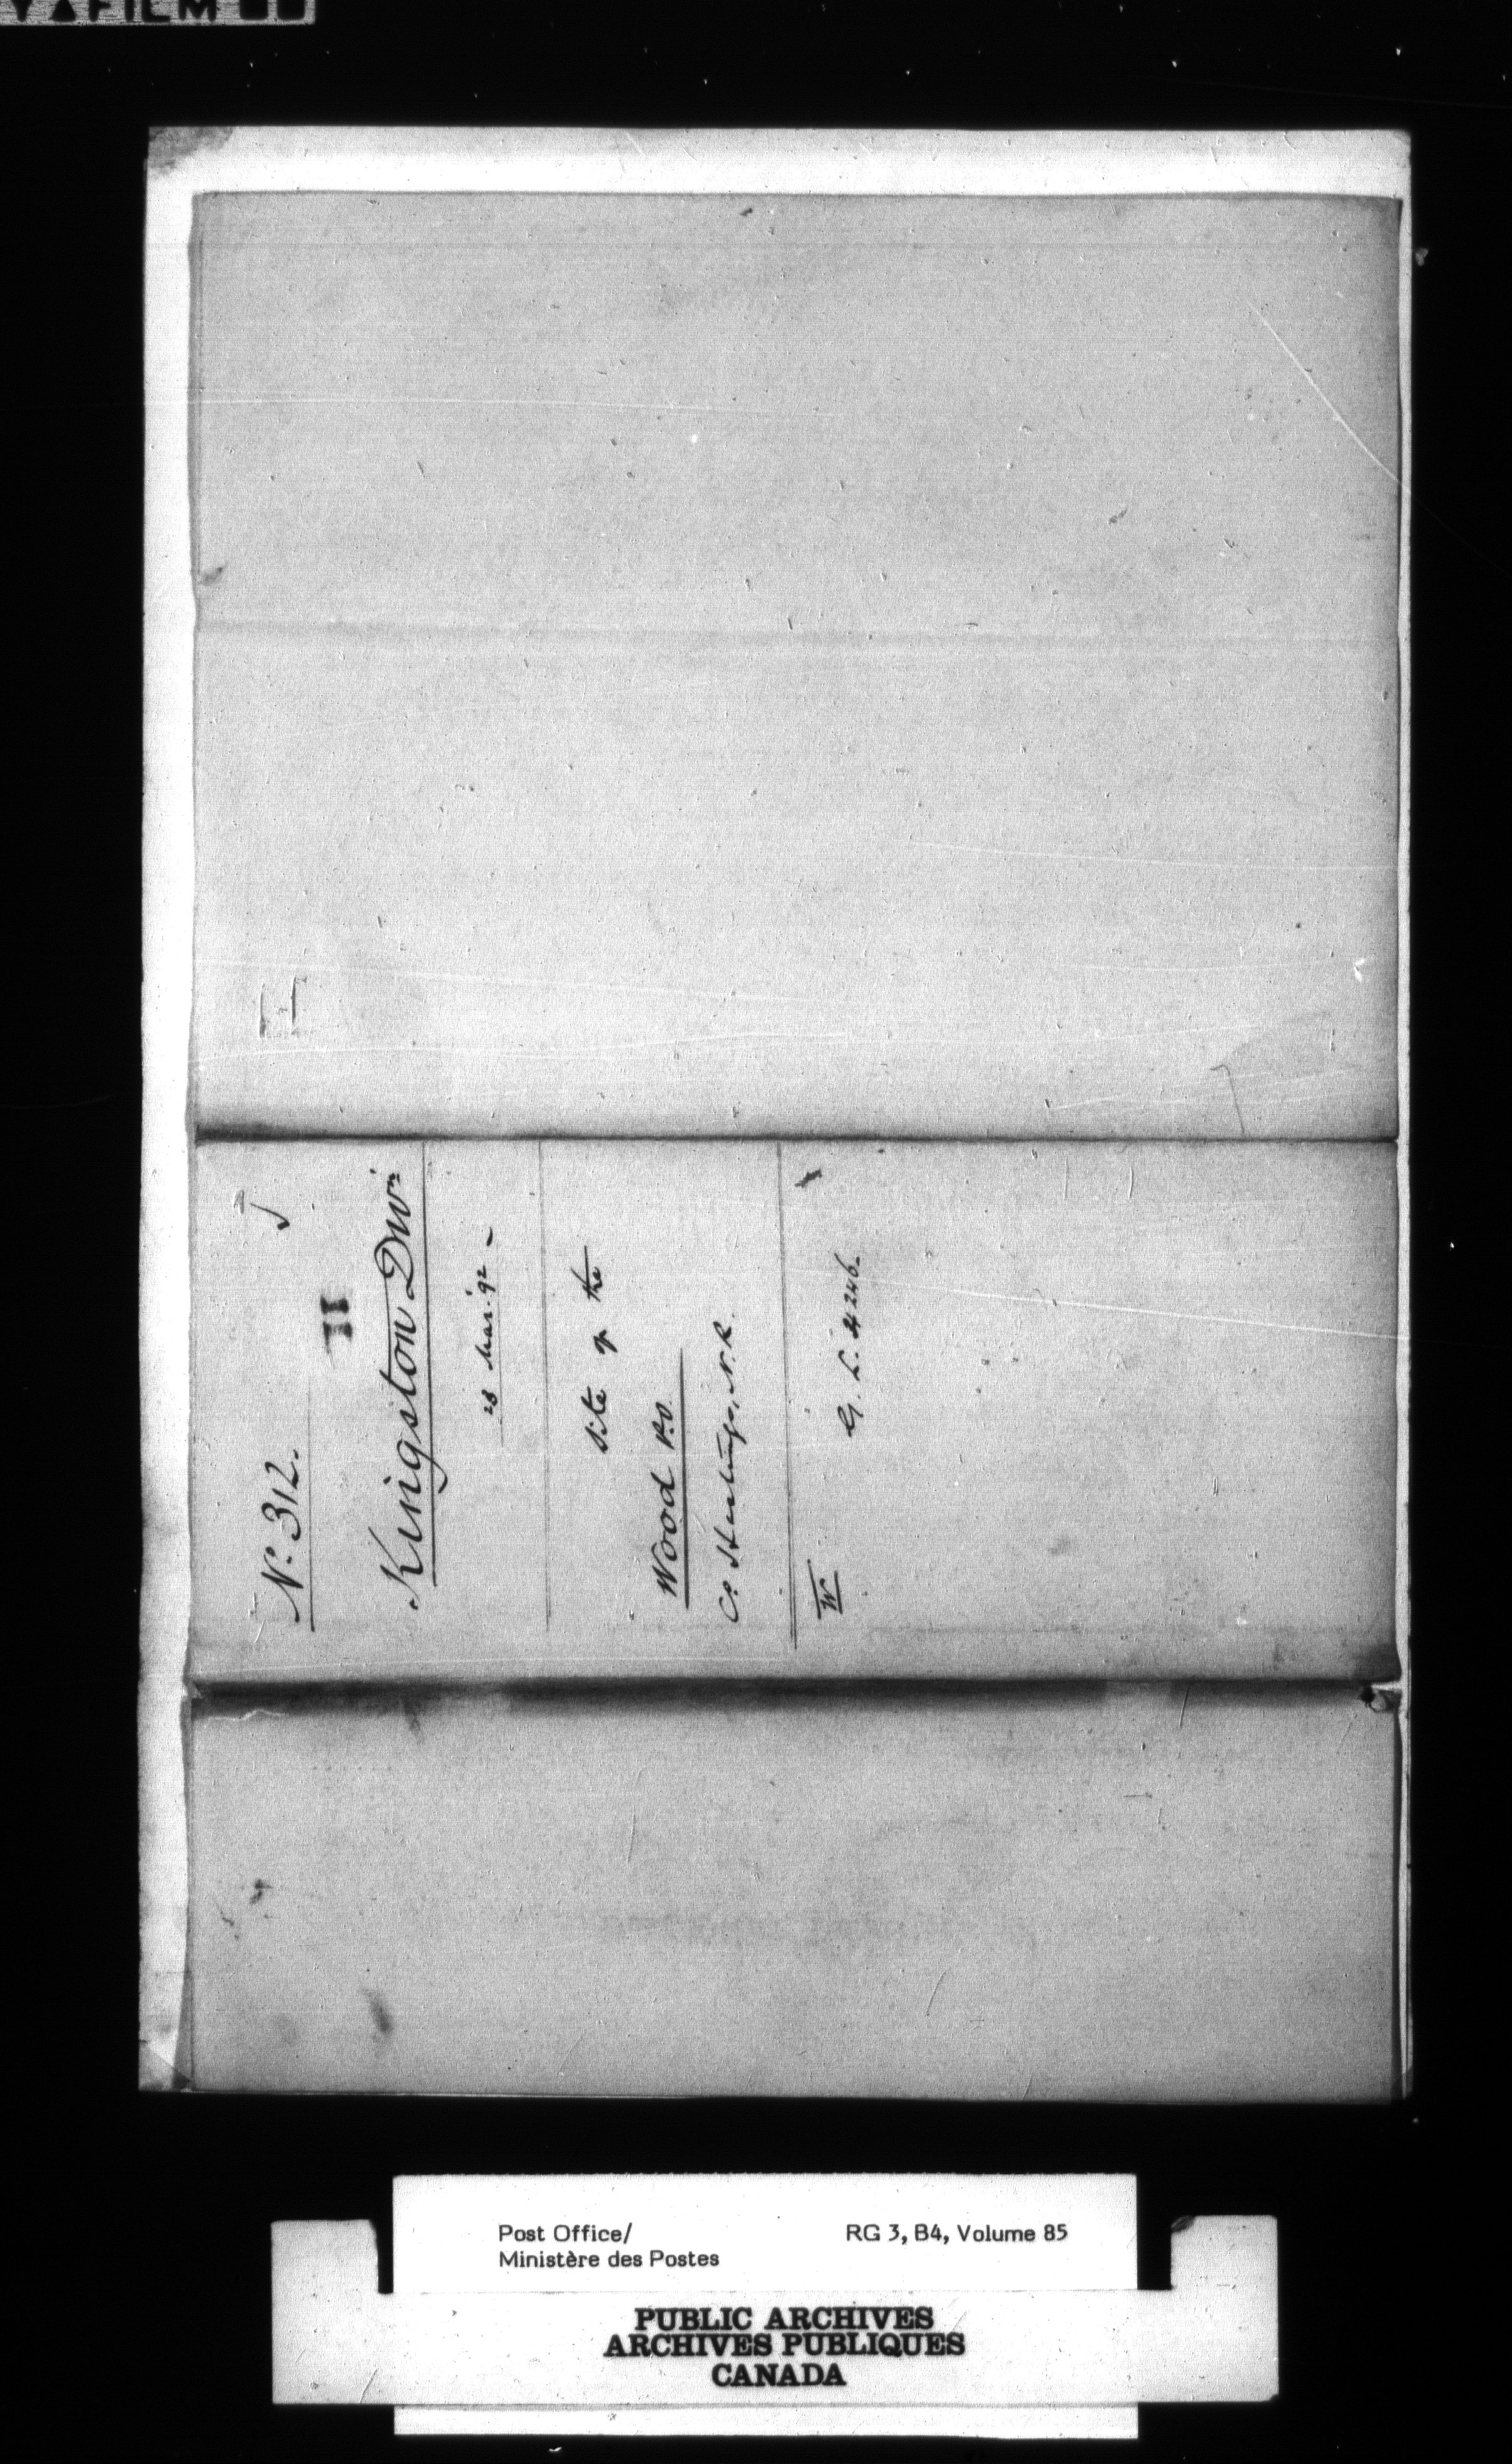 No. 312.
II
Kingston Divn
28 Mar. '92 -
Site of the
Wood P.O
Co. Hastings, N.R.
W
G. L. 4246.
Post Office/ RG 3, B4, Volume 85
Ministère des Postes
PUBLIC ARCHIVES
ARCHIVES PUBLIQUES
CANADA